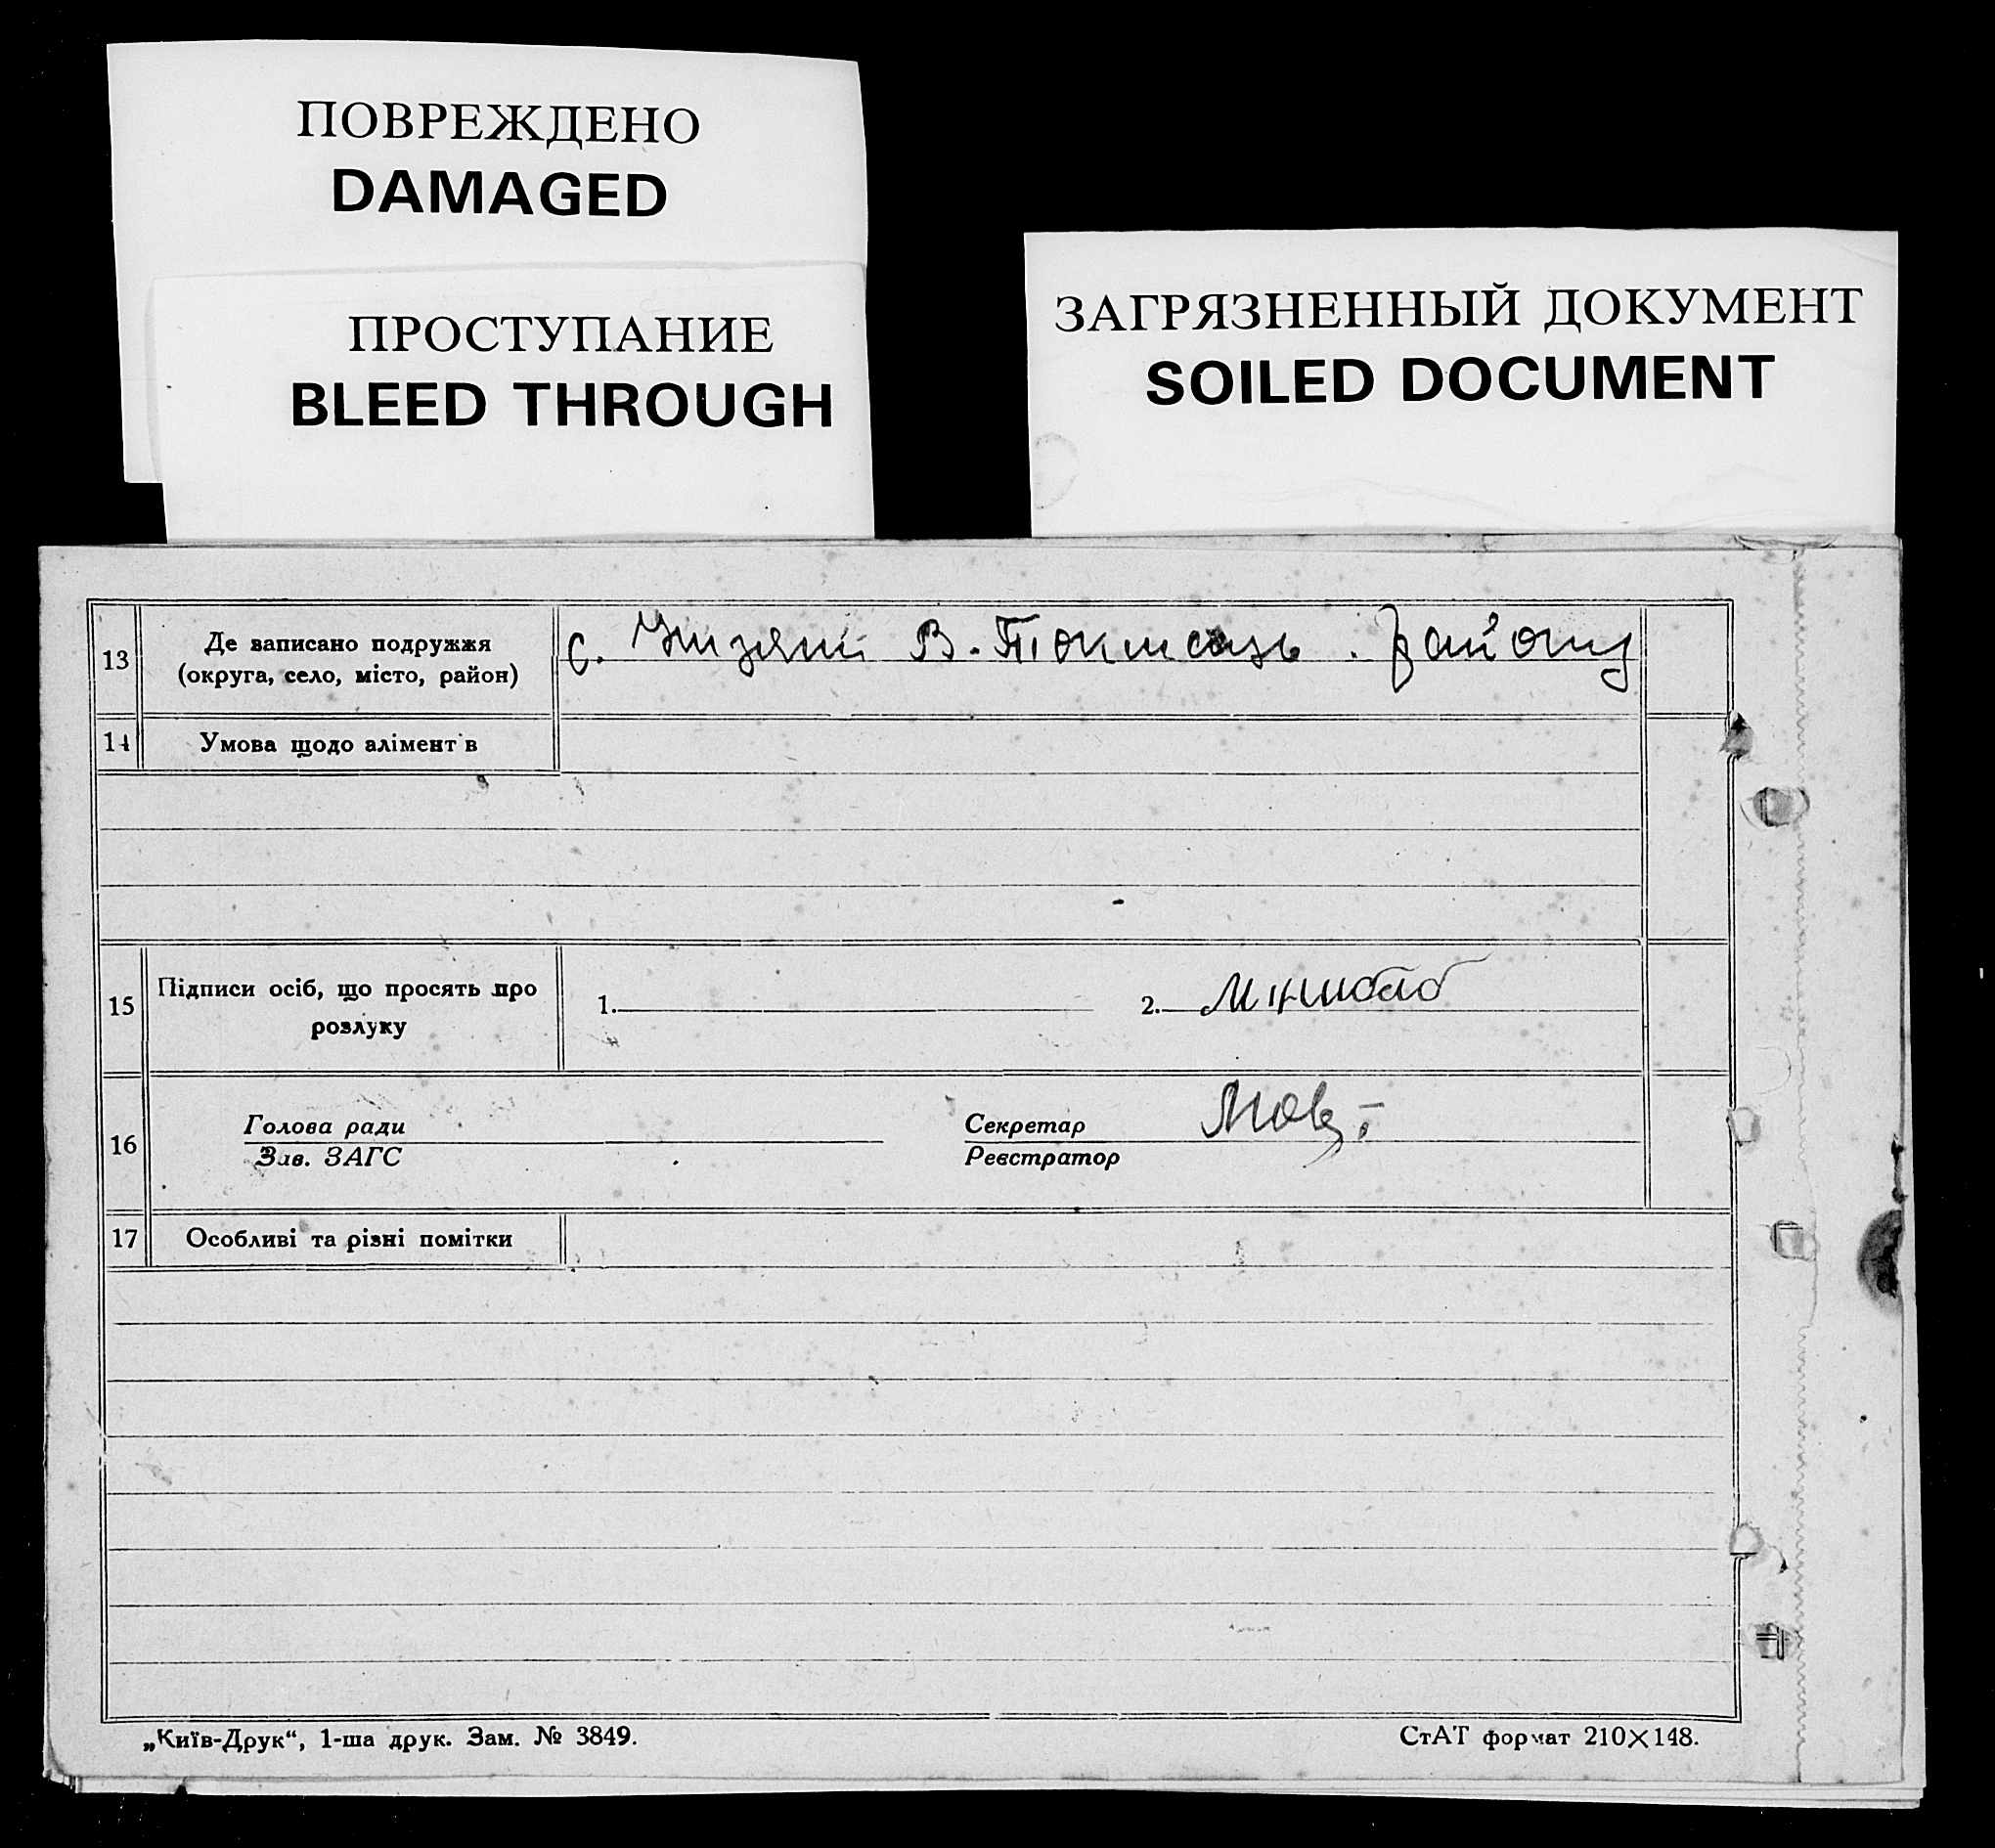 ПОВРЕЖДЕНО
DAMAGED
ПРОСТУПАНИЕ
BLEED THROUGH
ЗАГРЯЗНЕННЫЙ ДОКУМЕНТ
SOILED DOCUMENT
13 Де записано подружжя
(округа, село, місто, район)
с. В. Токмаць. району
14 Умова щодо алімент в
15 Підписи осіб, що просять про
розлуку
1. 2.
16 Голова ради
Зав. ЗАГС
Секретар
Реєстратор
17 Особливі та різні помітки
„Київ-Друк“, 1-ша друк. Зам. № 3849.
СтАТ формат 210×148.